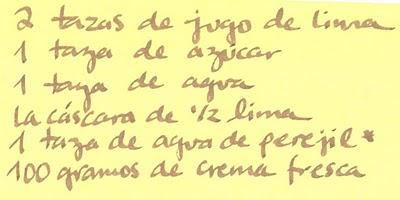 2 tazas de jugo de lima
1 taza de azúcar
1 taza de agua
la cáscara de 1/2 lima
1 taza de agua de perejil*
100 gramos de crema fresca